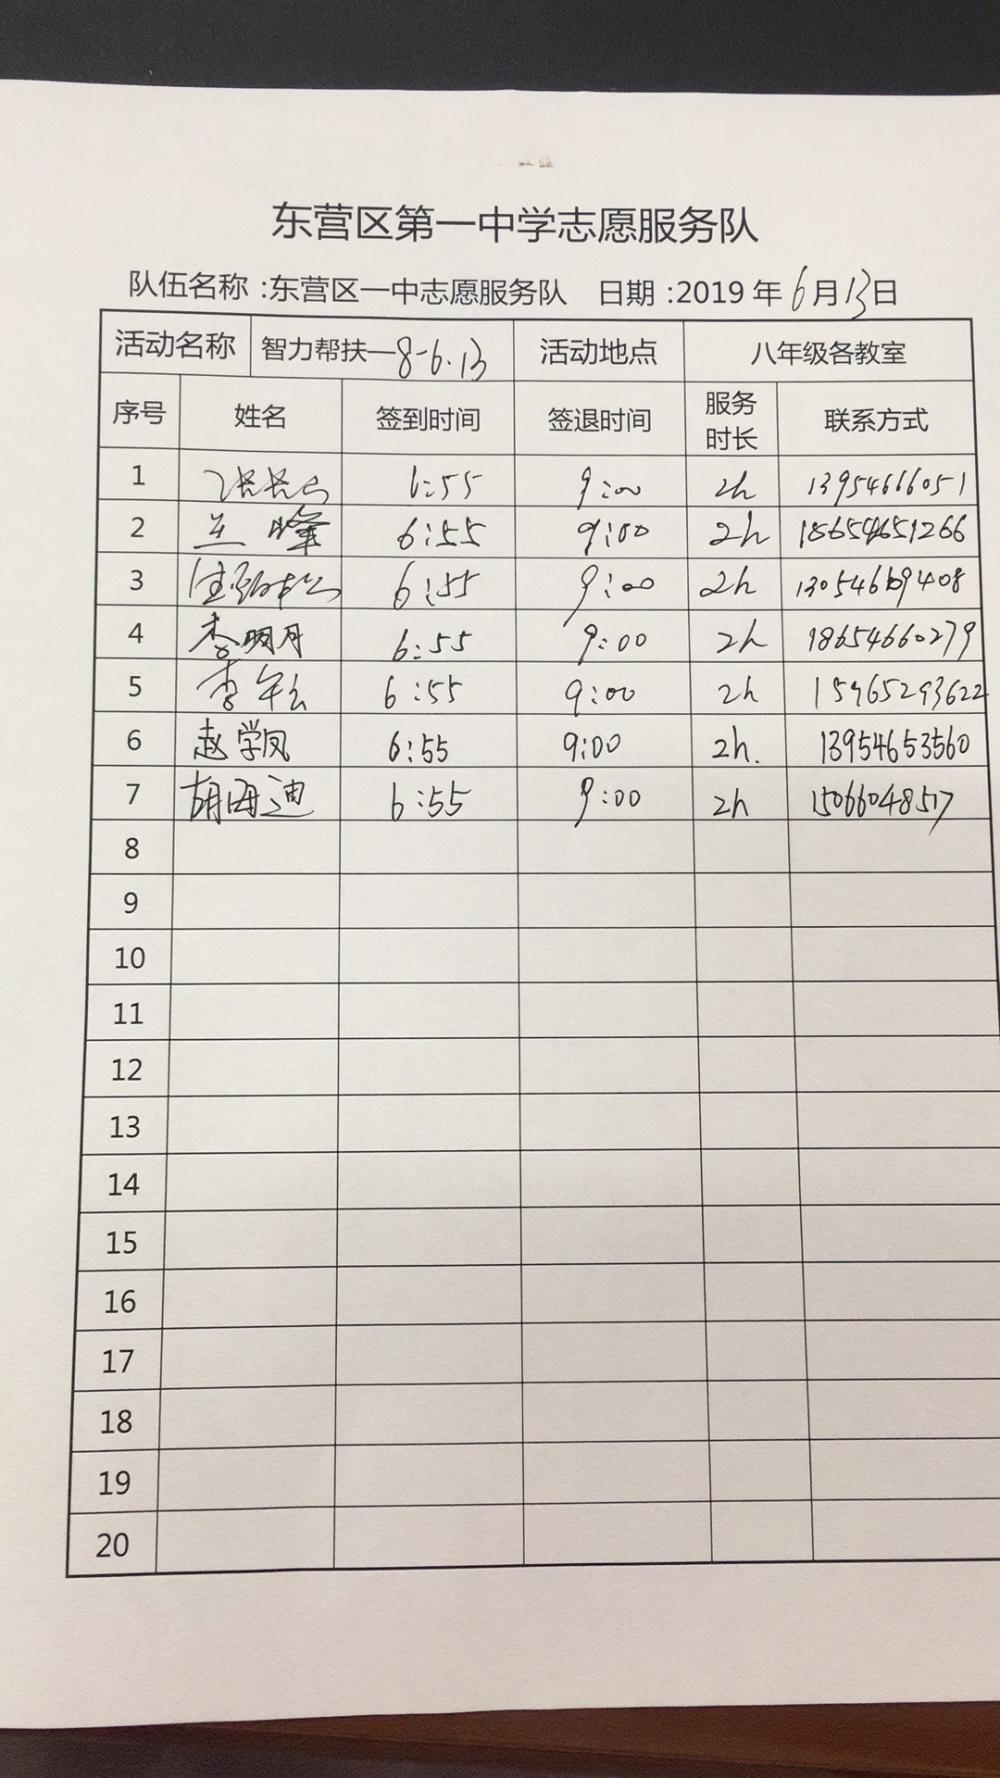 东营区第一中学志愿服务队
队伍名称：东营区一中志愿服务队 日期：2019年6月13日
活动名称 智力帮扶—8-6.13 活动地点 八年级各教室
序号 姓名 签到时间 签退时间 服务时长 联系方式
1 6:55 9:00 2h 13954666051
2 兰峰 6:55 9:00 2h 18654651266
3 6:55 9:00 2h
4 李明月 6:55 9:00 2h 18654660279
5 6:55 9:00 2h 15965293622
6 赵学凤 6:55 9:00 2h. 13954653560
7 胡海迪 6:55 9:00 2h 15066048517
8
9
10
11
12
13
14
15
16
17
18
19
20